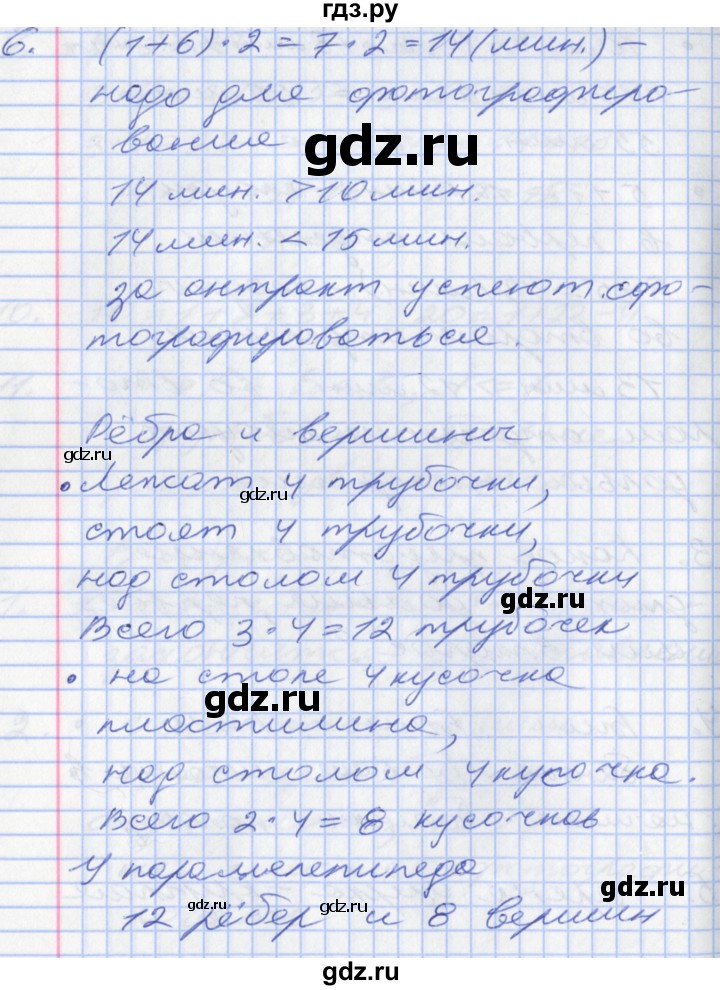 гдз.ру
6. (1+6)·2=7·2=14(мин.)–
надо для фотографиро-
вания
gdz.ru
14 мин. >10 мин.
14 мин. < 15 мин.
за антракт успеют сфо-
тографироваться.
Рёбра и вершины
gdz.ru
• Лежат 4 трубочки,
gdz.ru
стоят 4 трубочки,
над столом 4 трубочки
gdz.ru
Всего 3·4=12 трубочек
• на столе 4 кусочка
gdz.ru
пластилина,
над столом 4 кусочка.
Всего 2·4=8 кусочков
У параллелепипеда
gdz.ru
12 рёбер и 8 вершин
gdz.ru
gdz.ru
gdz.ru